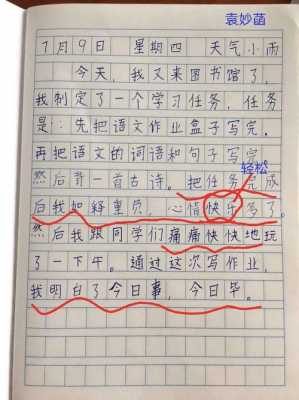 袁妙菡
7月9日 星期四 天气小雨
今天,我又来图书馆了,
我制定了一个学习任务,任务
是:先把语文作业盒子写完。
再把语文的词语和句子写完
轻松
然后背一首古诗。把任务完成
后我如释重负,心情快乐多了。
然后我跟同学们痛痛快快地玩
了一下午。通过这次写作业,
我明白了今日事,今日毕。